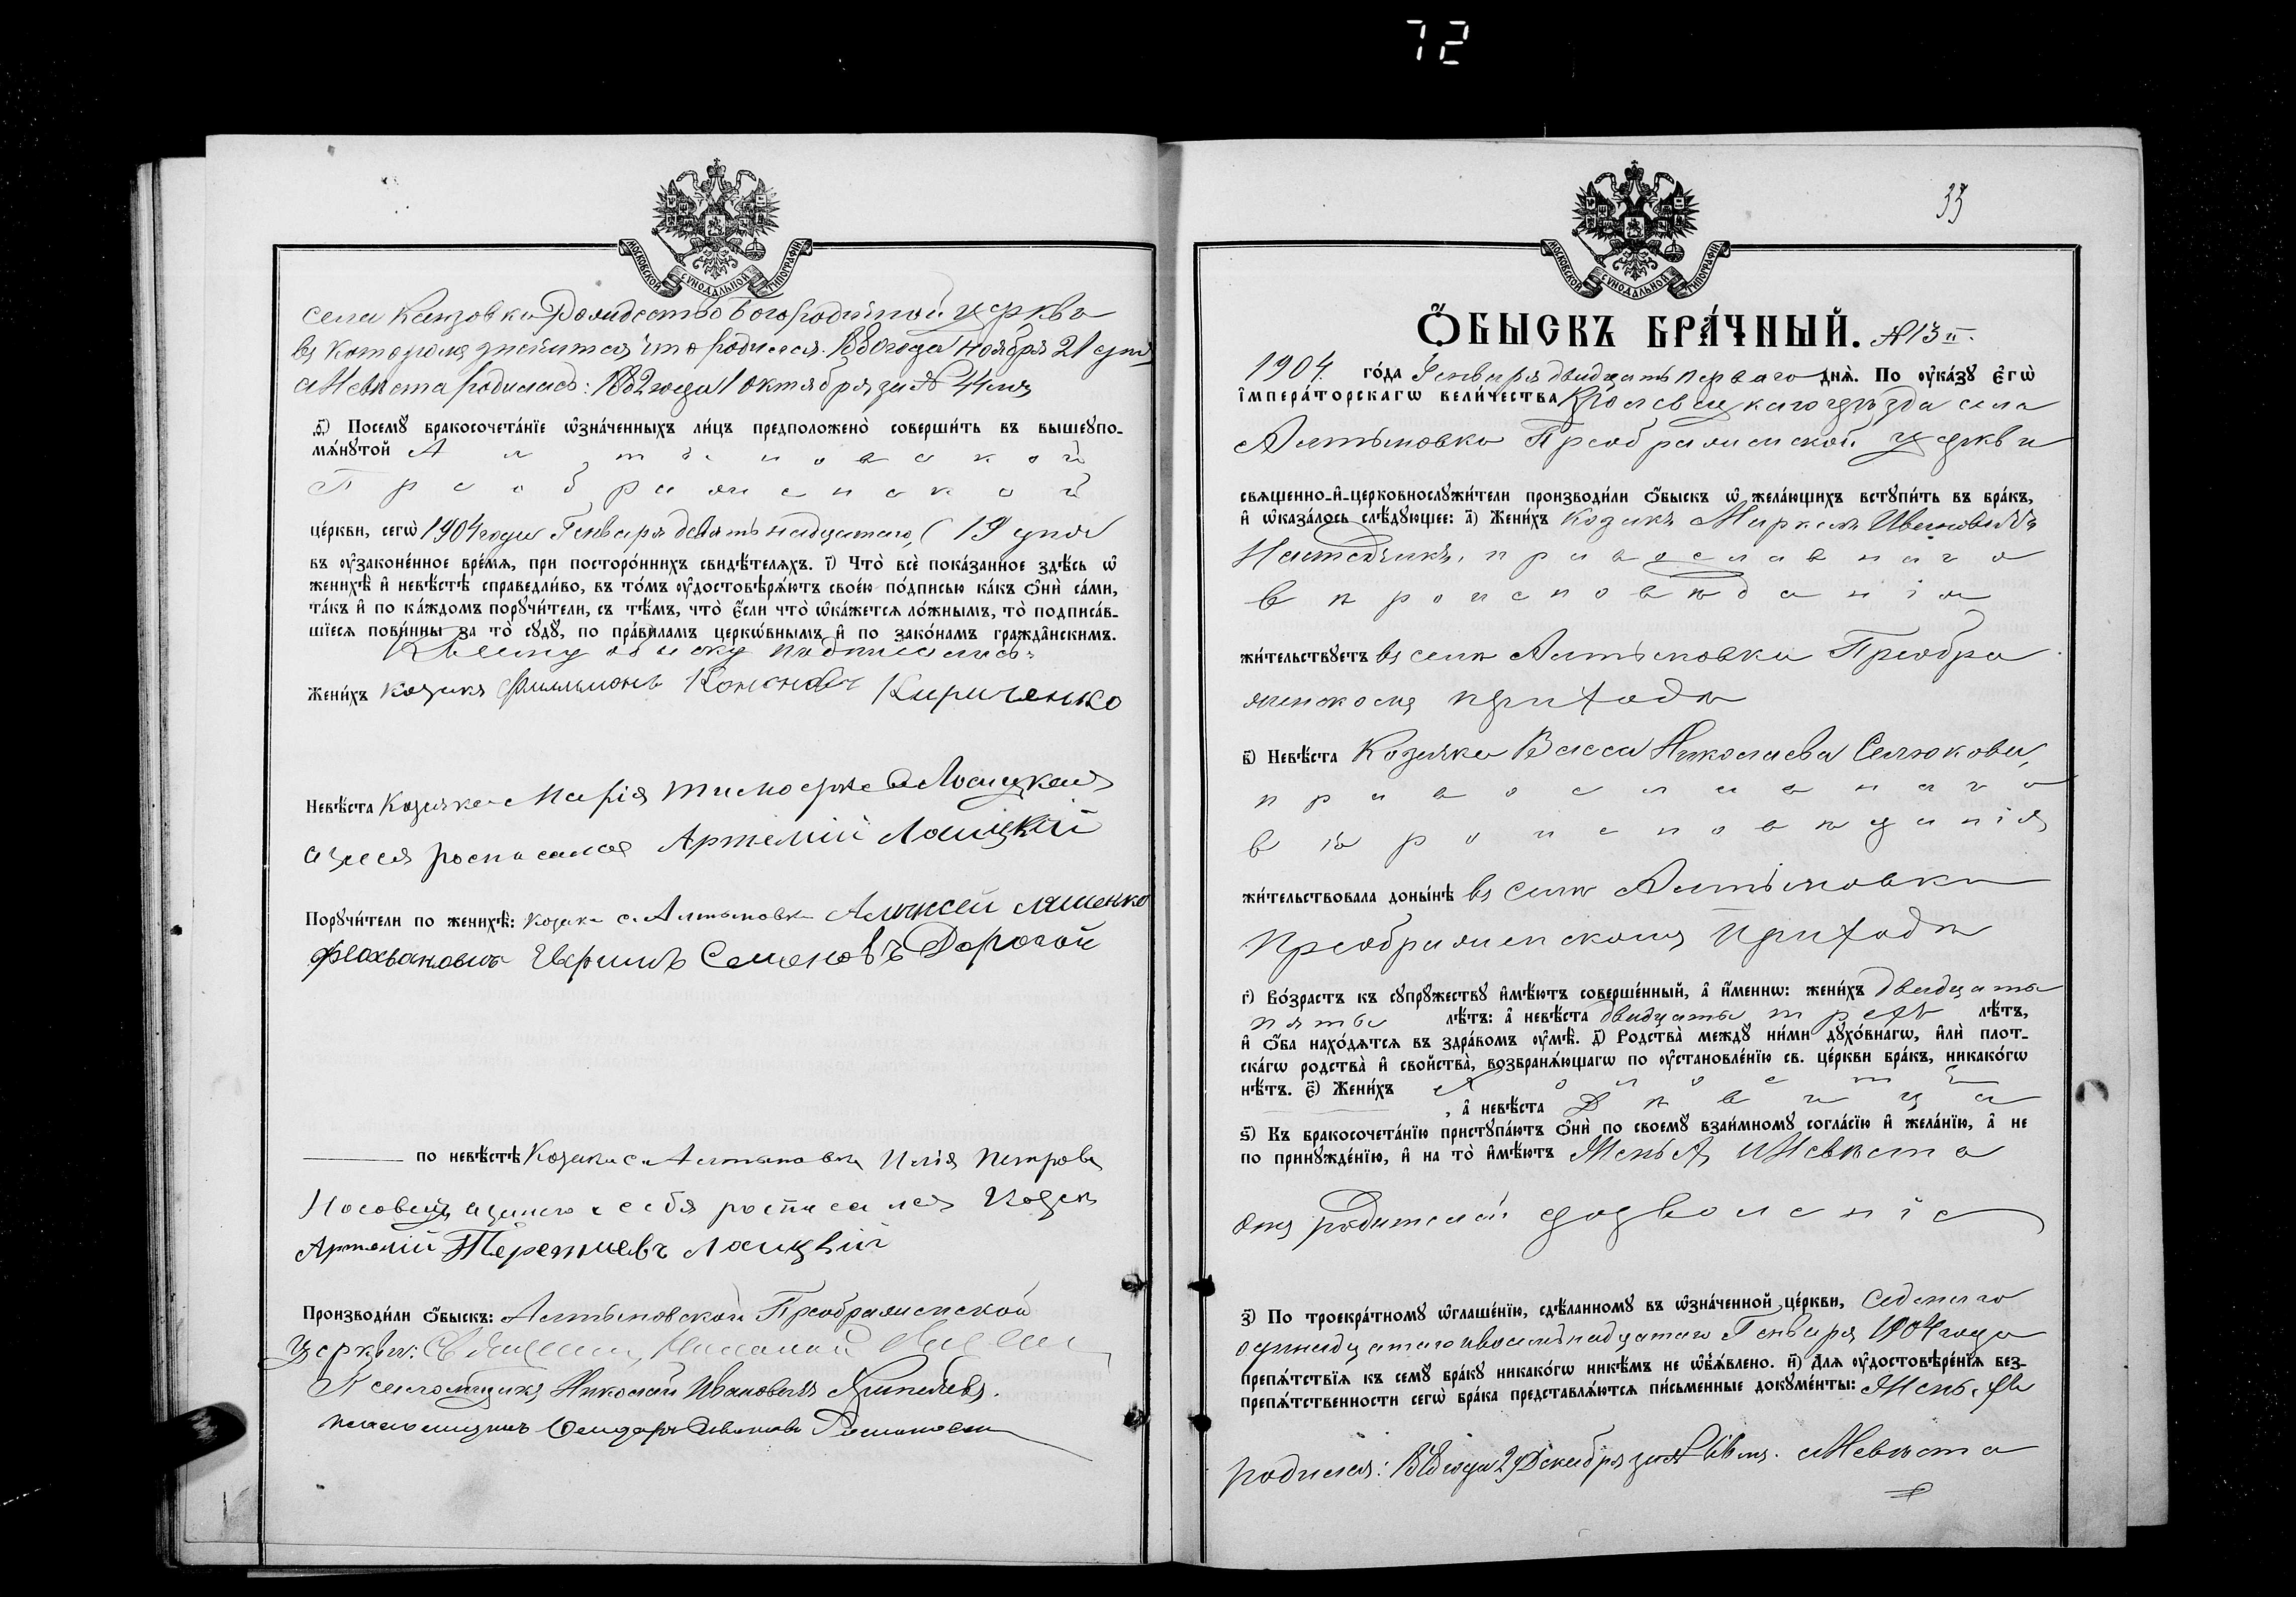 72
МОСКОВСКОЙ СѴНОДАЛЬНОЙ ТИПОГРАФІИ
села Рождество Богородичной церкви
въ которомъ значится что родился 1880 года Ноября 21 дня
а Невѣста родилась: 1882 года 1 октября за № 44 мъ
д҃і) Посемꙋ бракосочета́нїе ѡ҆зна́ченныхъ ли́цъ предположено̀ соверши́ть въ вышеупо-
мѧ́нꙋтой Алтыновской
Преображенской
це́ркви, сегѡ̀ 1904 года Генваря девятьнадцатаго, (19 дня
въ ᲂу҆законе́нное вре́мѧ, при посторо́ннихъ свидѣ́телѧхъ. і҃) Что̀ всѐ пока́занное здѣ́сь ѡ҆
женихѣ̀ и҆ невѣ́стѣ справедли́во, въ то́мъ ᲂу҆достовѣрѧ́ютъ свое́ю по́дписью ка́къ ѻ҆нѝ са́ми,
та́къ и҆ по ка́ждомъ порꙋчи́тели, съ тѣ́мъ, что̀ є҆́сли что̀ ѡ҆ка́жетсѧ ло́жнымъ, то̀ подписа́в-
шїесѧ пови́нны за то̀ сꙋдꙋ̀, по пра́виламъ церкѡ́внымъ и҆ по зако́намъ гражда̂нскимъ.
К сему обыску подписались:
Жени́хъ козакъ Филимонъ Кононовъ Кириченко
Невѣ́ста Козачка Марія Тимофеева Лоицкая
а за нея росписался Артемій Лоицкій
Порꙋчи́тели по женихѣ̀: козакъ с. Алтыновки Алексей Ляшенко
Семеновъ Дорогой
по невѣ́стѣ Козакъ с. Алтыновки Илія Петровъ
Носовецъ а за него и себя росписался Козакъ
Артемій Терентиевъ Лоицкій
Производи́ли ѻ҆́быскъ: Алтыновской Преображенской
церкви: Священникъ
Псаломщикъ Николай Ивановичъ
псаломщикъ
МОСКОВСКОЙ СѴНОДАЛЬНОЙ ТИПОГРАФІИ
33
Ѻ҆БЫСКЪ БРА́ЧНЫЙ. №13й.
1904 го́да Генваря двадцать перваго днѧ̀. По ᲂу҆ка́зꙋ є҆гѡ̀
і҆мпера́торскагѡ вели́чества Кролевецкаго уѣзда села
Алтыновки Преображенской церкви
свѧщенно-и҆-церковнослꙋжи́тели производи́ли ѻ҆́быскъ ѡ҆ жела́ющихъ встꙋпи́ть въ бра́къ,
и҆ ѡ҆каза́лось слѣ́дꙋющее: а҃) Жени́хъ козакъ Ивановичъ
православнаго
вѣроисповѣданія
жи́тельствꙋетъ въ селѣ Алтыновки Преобра
женскомъ приходѣ
в҃) Невѣ́ста Козачка Васса Николаева Селюкова,
православнаго
вѣроисповѣданія
жи́тельствовала доны́нѣ въ селѣ Алтыновки
Преображенскомъ приходѣ
г҃) Во́зрастъ къ сꙋпрꙋ́жествꙋ и҆мѣ́ютъ соверше́нный, а҆ и҆́меннѡ: жени́хъ двадцать
пять лѣ́тъ: а҆ невѣ́ста двадцать трехъ лѣ́тъ,
и҆ ѻ҆́ба нахо́дѧтсѧ въ здра́вомъ ᲂу҆мѣ̀. д҃) Родства̀ междꙋ̀ ни́ми дꙋхо́внагѡ, и҆лѝ плот-
ска́гѡ родства̀ и҆ сво́йства̀, возбранѧ́ющагѡ по ᲂу҆становле́нїю св. це́ркви бра́къ, никако́гѡ
нѣ́тъ. є҃) Жени́хъ холостъ
, а҆ невѣ́ста Дѣвица
ѕ҃) Къ бракосочета́нїю пристꙋпа́ютъ ѻ҆нѝ по своемꙋ̀ взаи́мномꙋ согла́сїю и҆ жела́нїю, а҆ не
по принꙋжде́нїю, и҆ на то̀ и҆мѣ́ютъ Женихъ и Невѣста
отъ родителей дозволеніе
з҃) По троекра́тномꙋ ѡ҆глаше́нїю, сдѣ́ланномꙋ въ ѡ҆зна́ченной це́ркви, седмаго
одинадцатаго и восемьнадцатаго Генваря 1904 года
препѧ́тствїѧ къ семꙋ̀ бра́кꙋ никако́гѡ никѣ́мъ не ѡ҆б̾ѧ́влено. и҃) Длѧ ᲂу҆достовѣре́нїѧ без-
препѧ́тственности сегѡ̀ бра́ка представлѧ́ютсѧ пи́сьменные докꙋме́нты: Женихъ
родился: Декабря за № а Невѣста